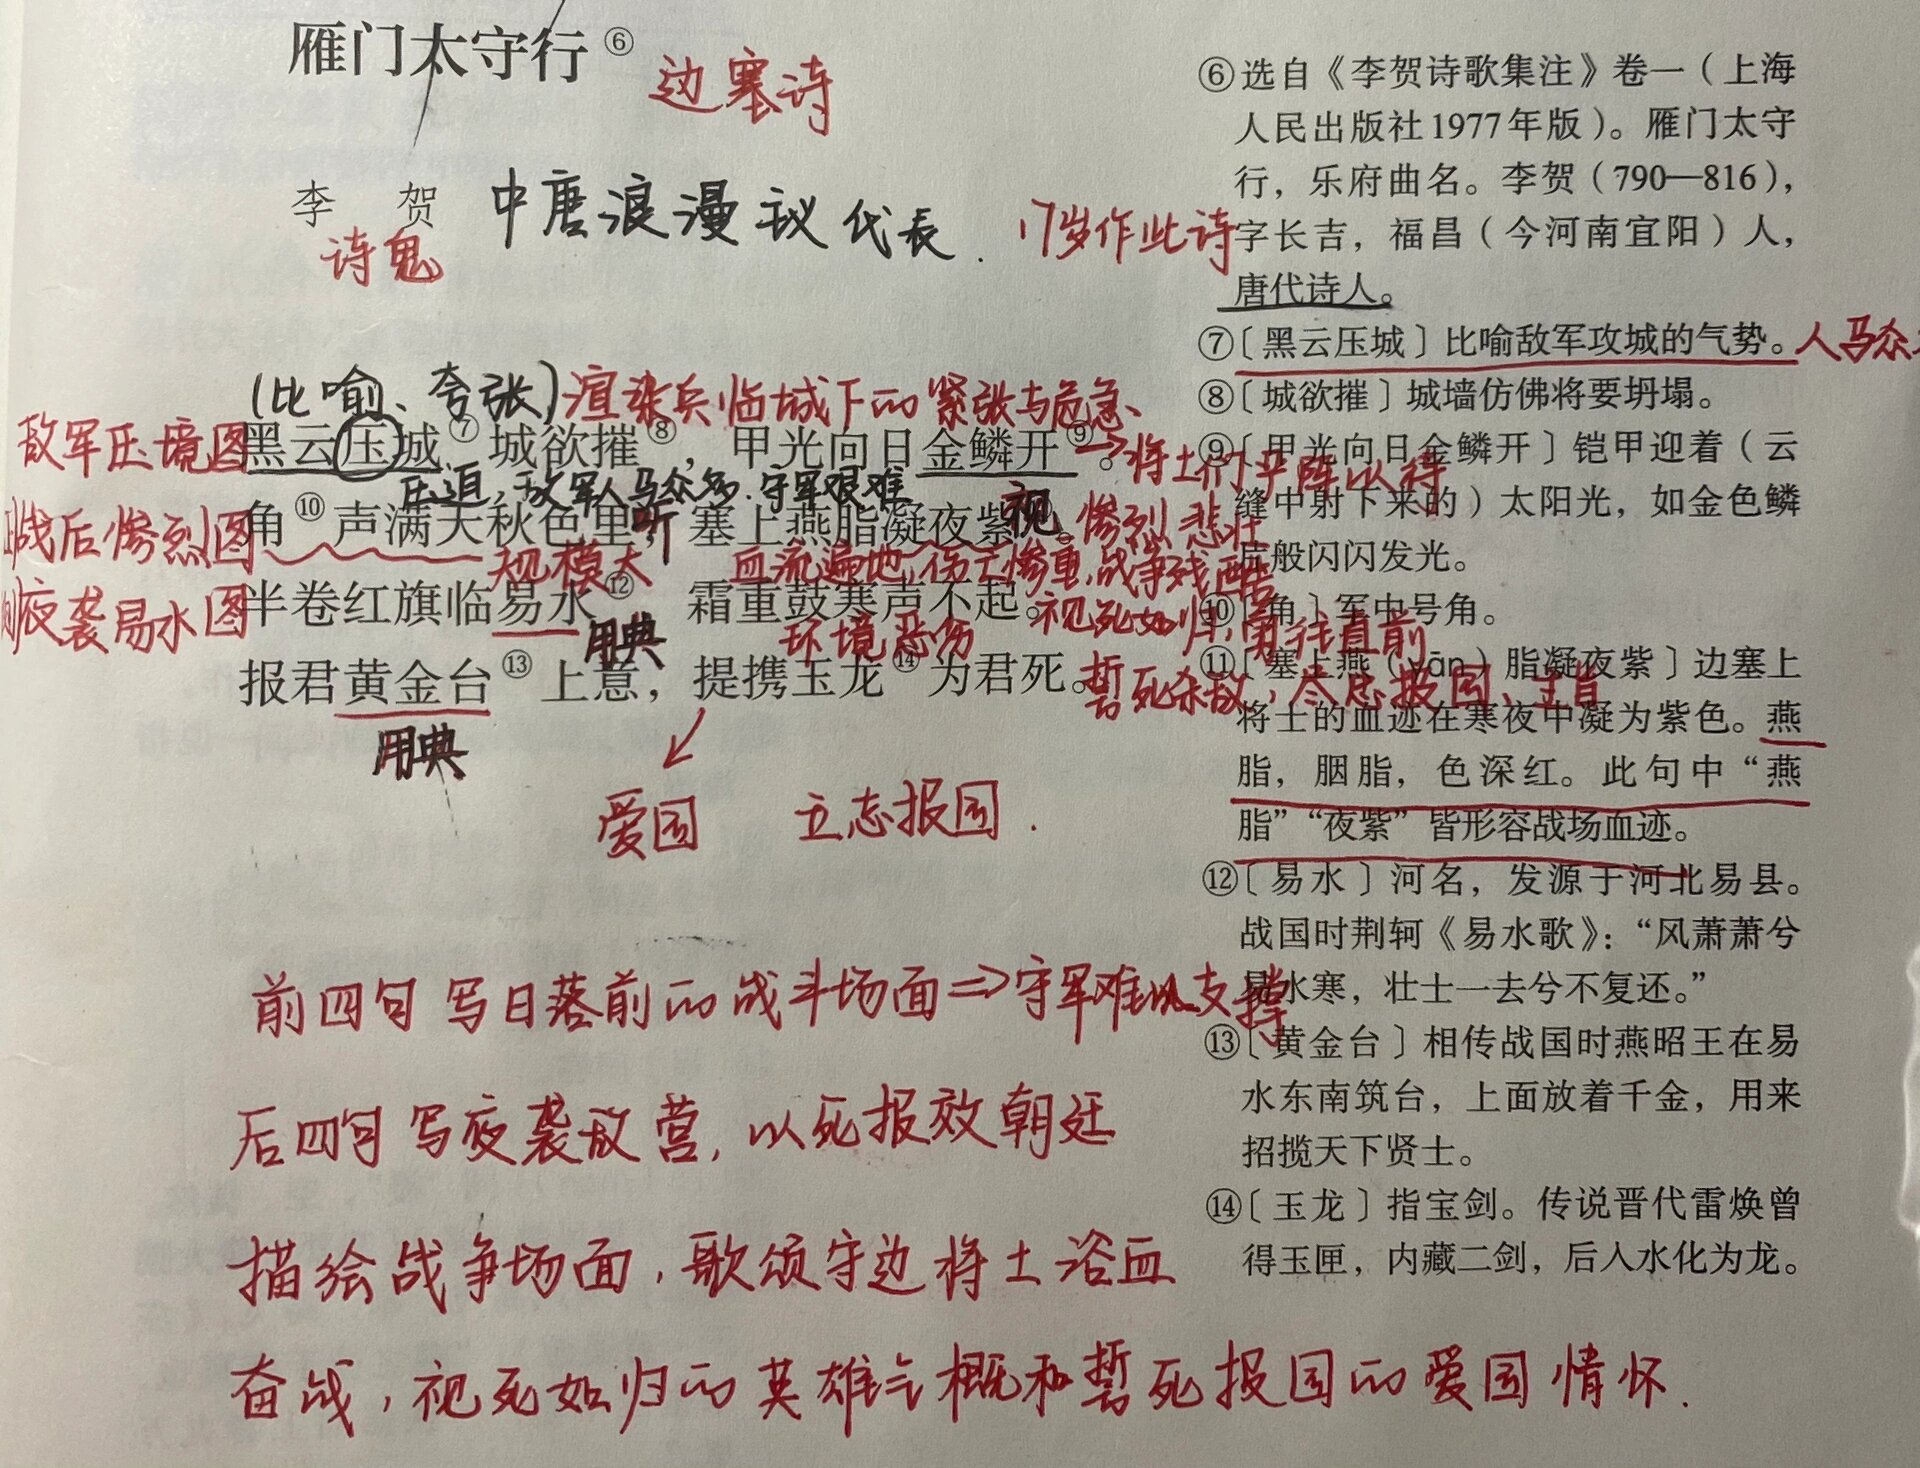 雁门太守行⑥
边塞诗
李 贺 中唐浪漫主义代表.
诗鬼
17岁作此诗
(比喻、夸张)渲染兵临城下的紧张与危急、
敌军压境图
黑云压城⑦城欲摧⑧，甲光向日金鳞开⑨。
→将士们严阵以待
压迫，敌军人马众多.守军艰难
战后惨烈图
角⑩声满天秋色里，塞上燕脂凝夜紫。
听
视
惨烈悲壮
规模大
血流遍地，伤亡惨重，战争残酷
夜袭易水图
半卷红旗临易水⑫，霜重鼓寒声不起。
用典
环境恶劣
视死如归，勇往直前
报君黄金台⑬上意，提携玉龙⑭为君死。
誓死杀敌，尽忠报国、主旨
用典
爱国 立志报国.
前四句写日落前的战斗场面⇒守军难以支撑
后四句写夜袭敌营，以死报效朝廷
描绘战争场面，歌颂守边将士浴血
奋战，视死如归的英雄气概和誓死报国的爱国情怀.
⑥选自《李贺诗歌集注》卷一（上海
人民出版社1977年版）。雁门太守
行，乐府曲名。李贺（790—816），
字长吉，福昌（今河南宜阳）人，
唐代诗人。
⑦〔黑云压城〕比喻敌军攻城的气势。人马众
⑧〔城欲摧〕城墙仿佛将要坍塌。
⑨〔甲光向日金鳞开〕铠甲迎着（云
缝中射下来的）太阳光，如金色鳞
片般闪闪发光。
⑩〔角〕军中号角。
⑪〔塞上燕（yān）脂凝夜紫〕边塞上
将士的血迹在寒夜中凝为紫色。燕
脂，胭脂，色深红。此句中“燕
脂”“夜紫”皆形容战场血迹。
⑫〔易水〕河名，发源于河北易县。
战国时荆轲《易水歌》：“风萧萧兮
易水寒，壮士一去兮不复还。”
⑬〔黄金台〕相传战国时燕昭王在易
水东南筑台，上面放着千金，用来
招揽天下贤士。
⑭〔玉龙〕指宝剑。传说晋代雷焕曾
得玉匣，内藏二剑，后入水化为龙。